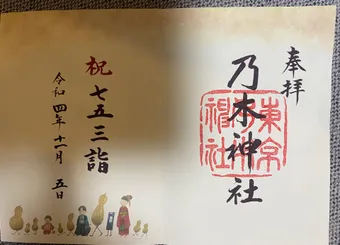 奉拝
乃木神社
東京
乃木
神社
祝 七五三詣
令和四年十一月五日